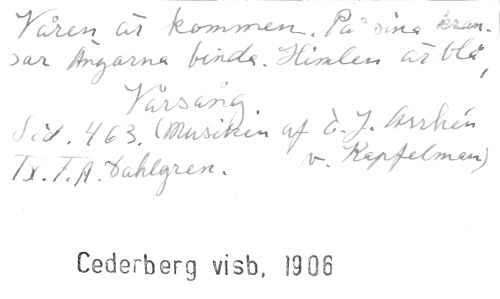 Våren är kommen. På sina kran-
sar Ängarna binda. Himlen är blå,
Vårsång.
Sid. 463. (Musiken af E. J. Arrhén
Tx. F. A. Dahlgren. v. Kapfelman)
Cederberg visb, 1906